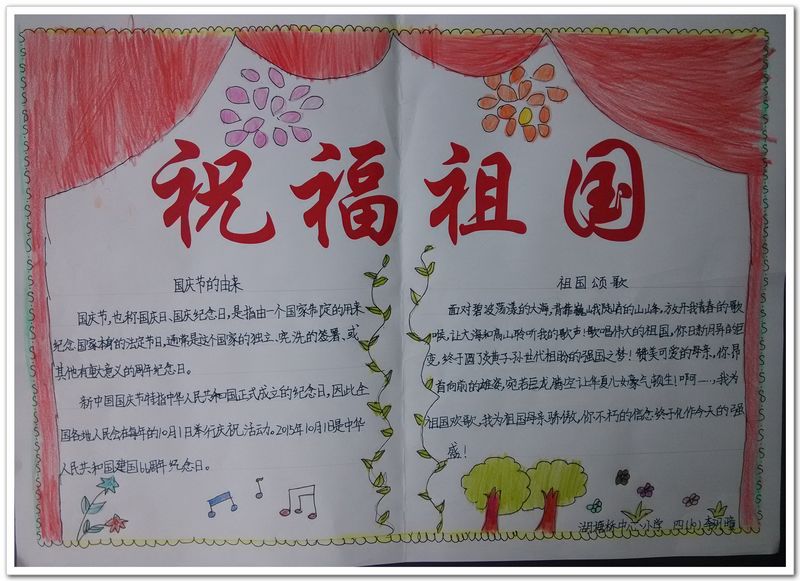 祝福祖国
国庆节的由来
国庆节,也称国庆日、国庆纪念日,是指由一个国家制定的用来
纪念国家本身的法定节日,通常是这个国家的独立、宪法的签署、或
其他有重大意义的周年纪念日。
新中国国庆节特指中华人民共和国正式成立的纪念日,因此全
国各地人民会在每年的10月1日举行庆祝活动。2015年10月1日是中华
人民共和国建国66周年纪念日。
祖国颂歌
面对碧波荡漾的大海,背靠巍峨陡峭的山峰,放开我青春的歌
喉,让大海和高山聆听我的歌声!歌唱伟大的祖国,你日新月异的巨
变,终于圆了炎黄子孙世代相盼的强国之梦!赞美可爱的母亲,你昂
首向前的雄姿,宛若巨龙腾空让华夏儿女豪气顿生!啊……,我为
祖国欢歌,我为祖国母亲骄傲,你不朽的信念终于化作今天的强
盛!
湖塘桥中心小学 四